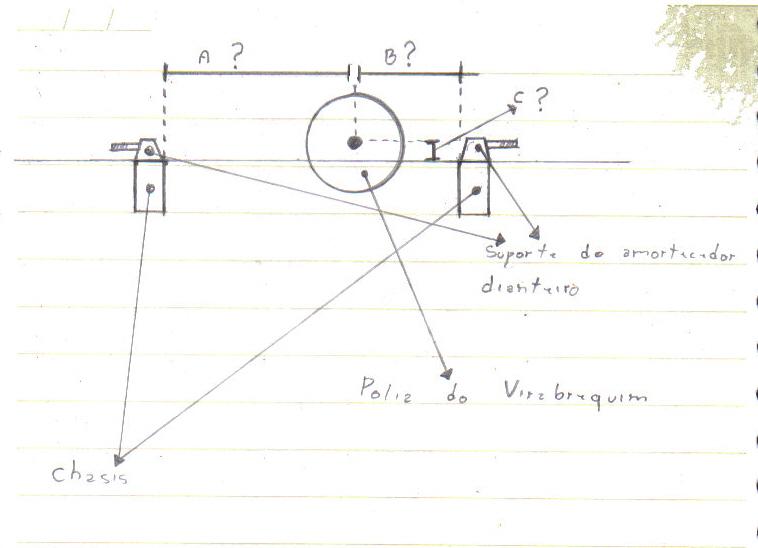 A ?
B ?
C ?
Suporte do amortecedor
dianteiro
Polia do Virabrequim
Chasis